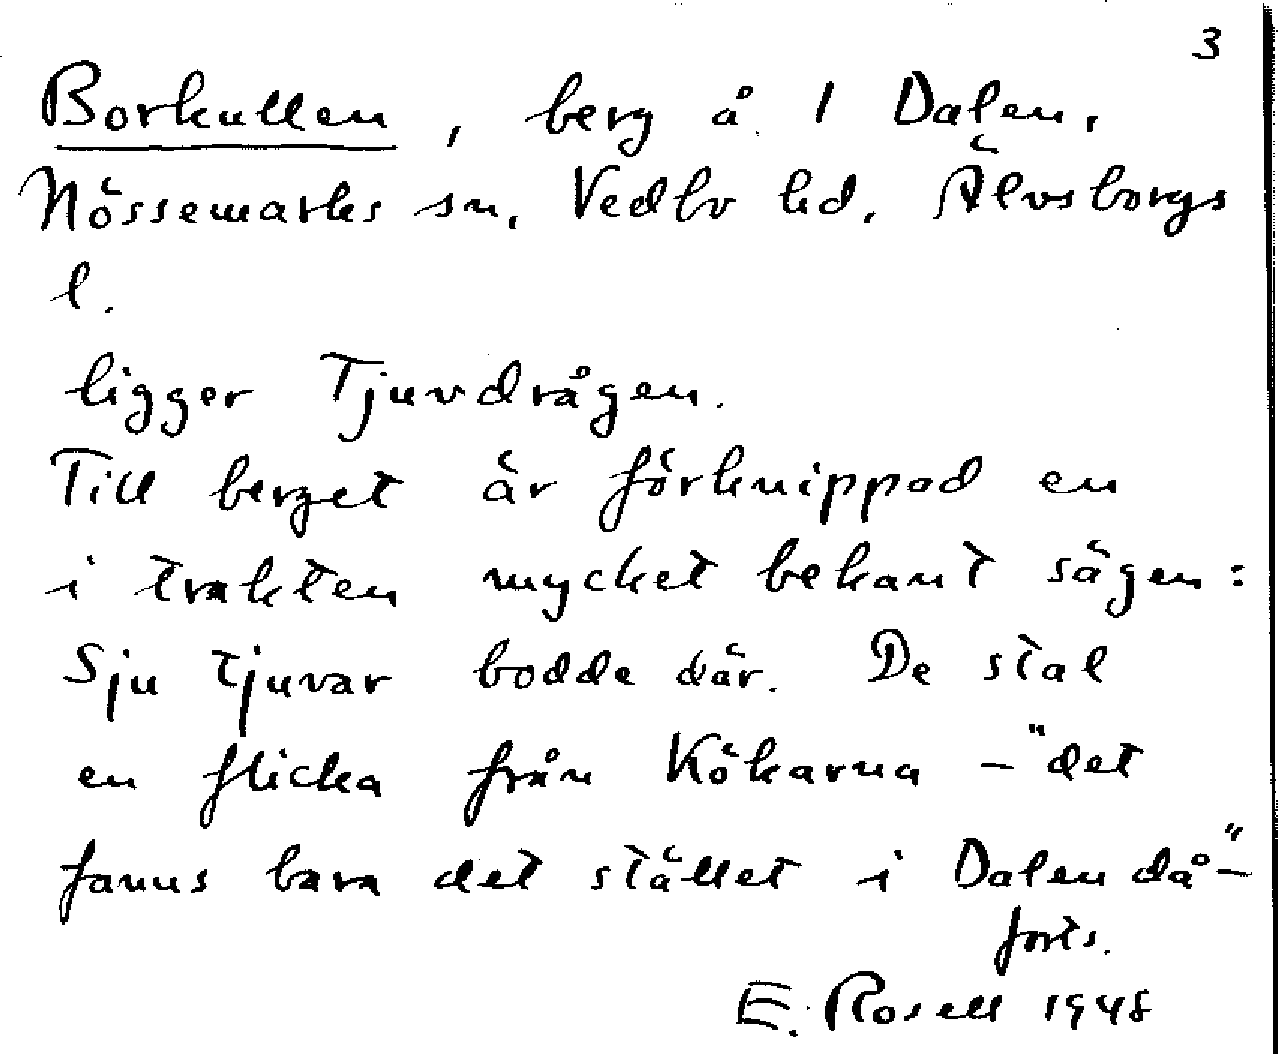 3
Borkullen, berg å 1 Dalen,
Nössemarks sn, Vedbo hd. Älvsborgs
l.
ligger Tjuvdrågen.
Till berget är förknippad en
i trakten mycket bekant sägen:
Sju tjuvar bodde där. De stal
en flicka från Kökarna - "det
fanns bara det stället i Dalen då" -
forts.
E. Rosell 1948